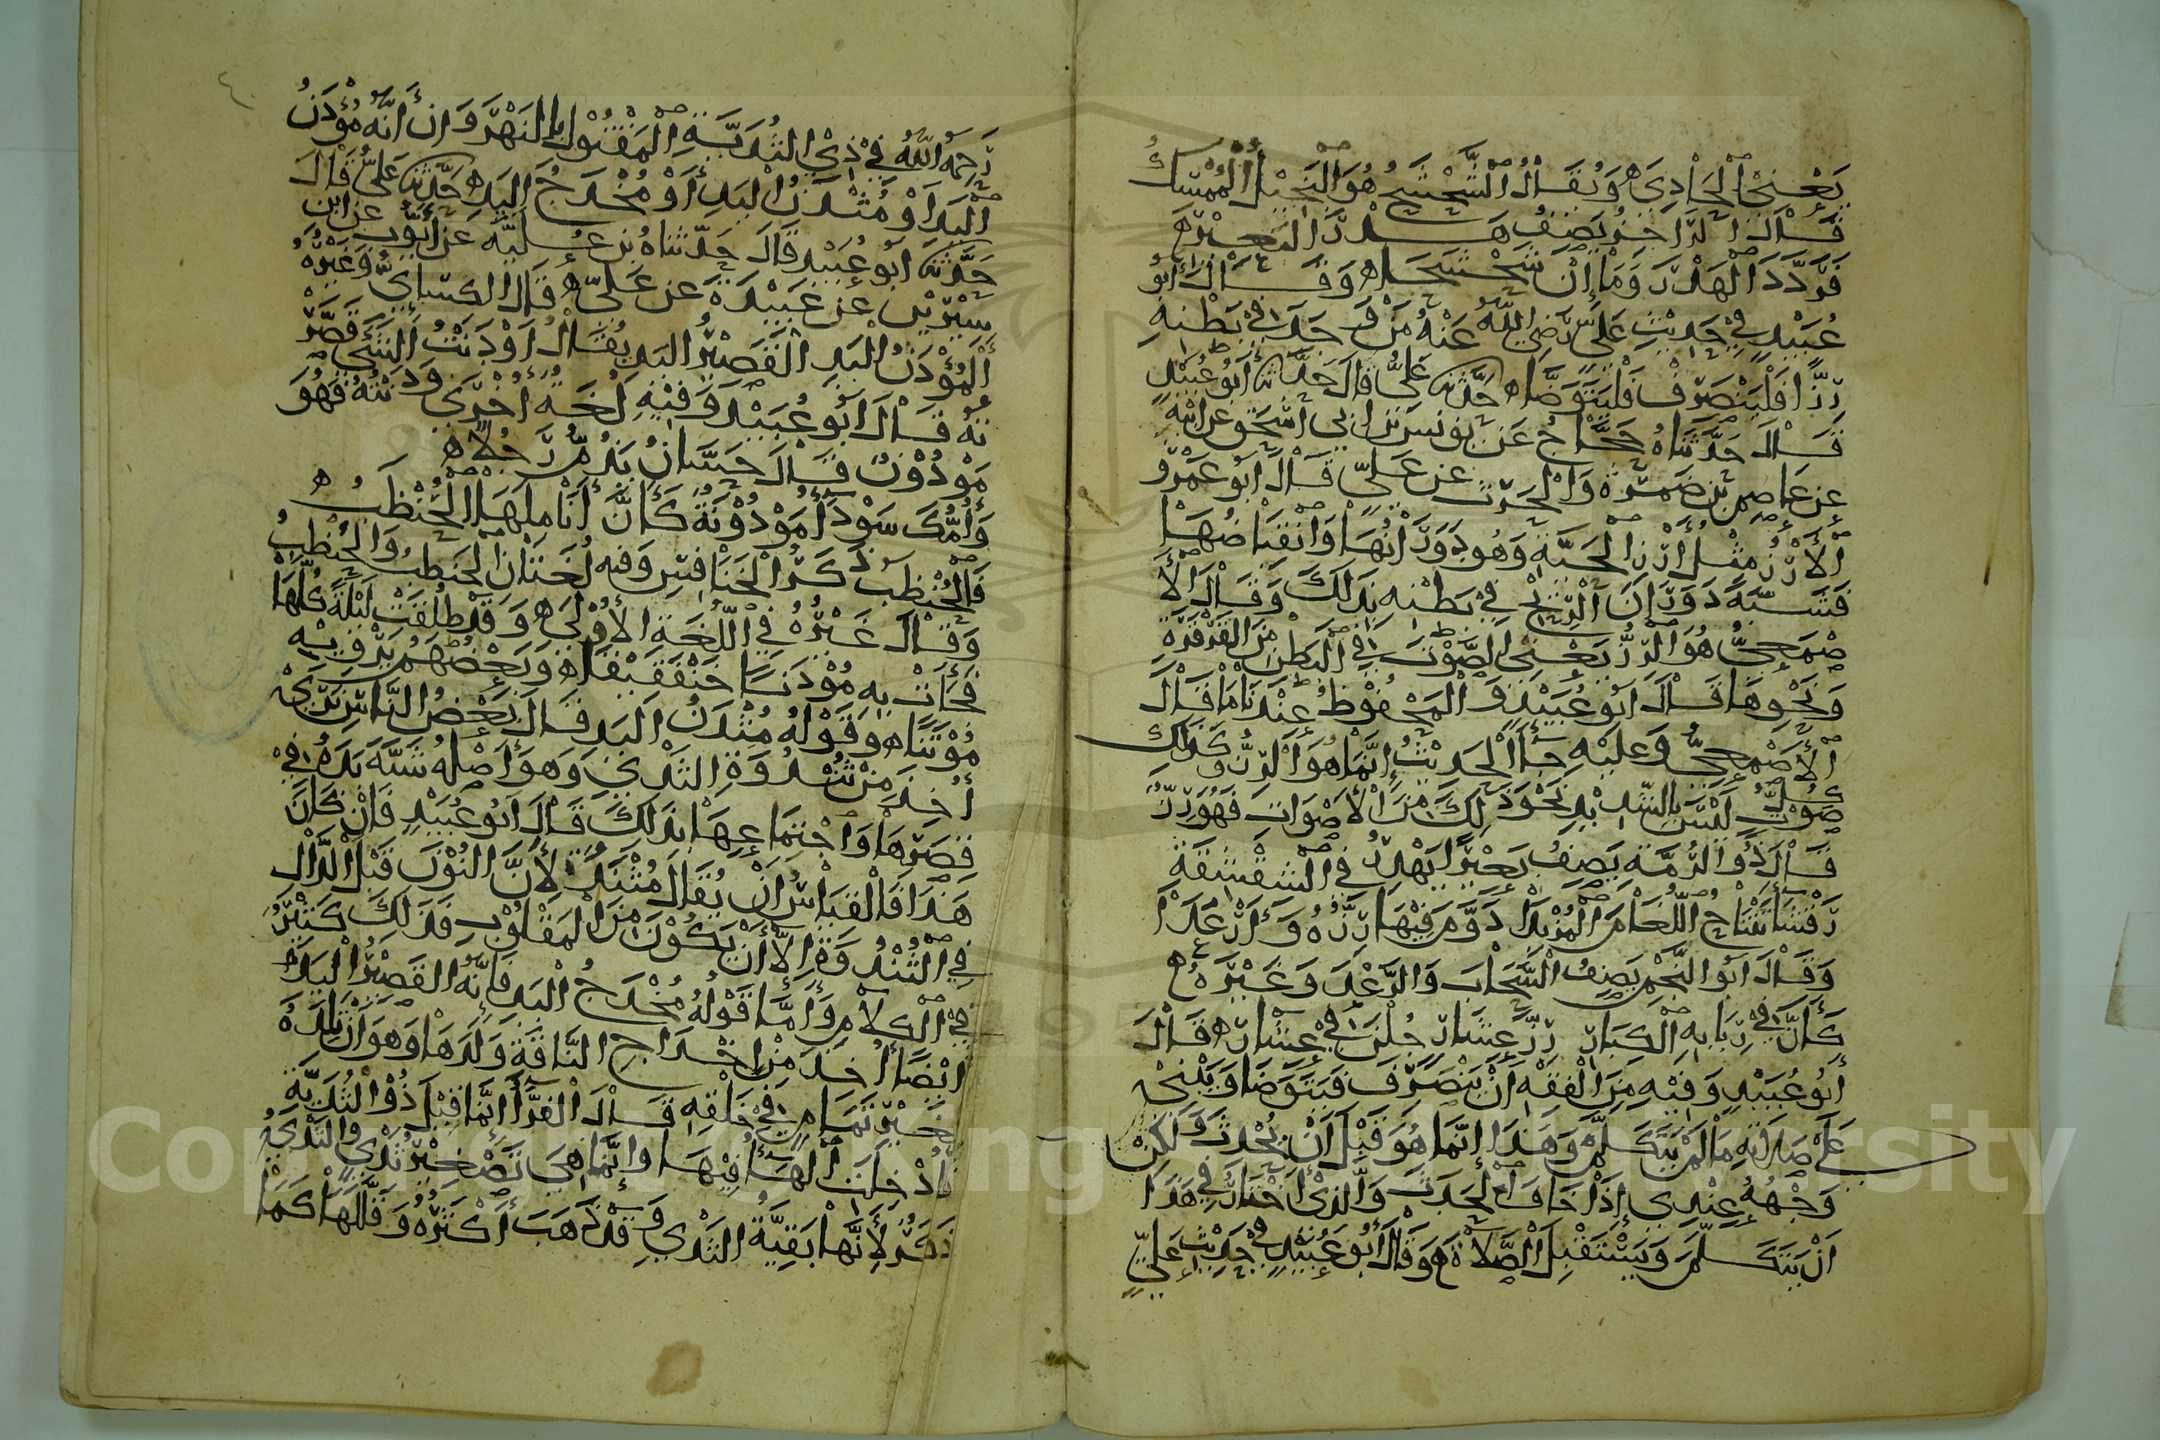 يَعْنِي الْحَادِيَ ه وَيُقَالُ الشَّحْشَحُ هُوَ الْبَخِيْلُ الْمُمْسِكُ
قَالَ الرَّاجِزُ يَصِفُ هَدْرَ الْبَعِيْرِ ه
فَرَدَّدَ الْهَدْرَ وَمَا إِنْ شَحْشَحَا ه وَقَالَ أَبُو
عُبَيْدٍ فِيْ حَدِيْثِ عَلِيٍّ رَضِيَ اللّٰهُ عَنْهُ مَنْ وَجَدَ فِيْ بَطْنِهِ
رِزًّا فَلْيَنْصَرِفْ فَلْيَتَوَضَّأ ه حَدَّثَنَا عَلِيٌّ قَالَ حَدَّثَنَا أَبُو عُبَيْدٍ
قَالَ حَدَّثَنَاهُ حَجَّاجٌ عَنْ يُونُسَ بْنِ أَبِي إِسْحَقَ عَنْ أَبِيْهِ
عَنْ عَاصِمِ بْنِ ضَمْرَةَ وَالْحَرْثِ عَنْ عَلِيٍّ قَالَ أَبُو عَمْرٍو
الْأَرْزُ مِثْلُ أَرْزِ الْحَيَّةِ وَهُوَ دَوَرَانُهَا وَانْقِبَاضُهَا
فَشَبَّهَ دَوَرَانَ الرِّيْحِ فِيْ بَطْنِهِ بِذَلِكَ وَقَالَ الْأَ
صْمَعِيُّ هُوَ الرِّزُّ يَعْنِي الصَّوْتَ فِي الْبَطْنِ مِنَ الْقَرْقَرَةِ
وَنَحْوِهَا قَالَ أَبُو عُبَيْدٍ وَالْمَحْفُوْظُ عِنْدَنَا مَا قَالَ
الْأَصْمَعِيُّ وَعَلَيْهِ جَاءَ الْحَدِيْثُ إِنَّمَا هُوَ الرِّزُّ وَكَذَلِكَ
كُلُّ صَوْتٍ لَيْسَ بِالشَّدِيْدِ نَحْوَ ذَلِكَ مِنَ الْأَصْوَاتِ فَهُوَ رِزٌّ
قَالَ ذُو الرُّمَّةِ يَصِفُ بَعِيْرًا يَهْدِرُ فِي الشِّقْشِقَةِ
رَقْشَاءَ تَنْتَاحُ اللُّغَامَ الْمُزْبِدَا دَوَّمَ فِيْهَا رِزُّهُ وَأَرْعَدَا
وَقَالَ أَبُو النَّجْمِ يَصِفُ السَّحَابَ وَالرَّعْدَ وَغَيْرَهُ ه
كَأَنَّ فِيْ رَبَابِهِ الْكِبَارِ رِزَّ عِشَارٍ جُلْنَ فِيْ عِشَارِ ه قَالَ
أَبُو عُبَيْدٍ وَفِيْهِ مِنَ الْفِقْهِ أَنْ يَنْصَرِفَ فَيَتَوَضَّأَ وَيَبْنِيْ
عَلَى صَلَاتِهِ مَا لَمْ يَتَكَلَّمْ وَهَذَا إِنَّمَا هُوَ قَبْلَ أَنْ يُحْدِثَ وَلَكِنْ
وَجْهُهُ عِنْدِي إِذَا خَافَ الْحَدَثَ وَالَّذِي أَخْتَارُ فِي هَذَا
أَنْ يَتَكَلَّمَ وَيَسْتَقْبِلَ الصَّلَاةَ ه وَقَالَ أَبُو عُبَيْدٍ فِيْ حَدِيْثِ عَلِيٍّ
رَحِمَهُ اللّٰهُ فِيْ ذِي الثُّدَيَّةِ الْمَقْتُوْلِ بِالنَّهْرَوَانِ أَنَّهُ مُؤْدَنُ
الْيَدِ أَوْ مُثْدَنُ الْيَدِ أَوْ مُخْدَجُ الْيَدِ ه حَدَّثَنَا عَلِيٌّ قَالَ
حَدَّثَنَا أَبُو عُبَيْدٍ قَالَ حَدَّثَنَاهُ بْنُ عُلَيَّةَ عَنْ أَيُّوبَ عَنِ ابْنِ
سِيْرِيْنَ عَنْ عَبِيْدَةَ عَنْ عَلِيٍّ ه قَالَ الْكِسَائِيُّ وَغَيْرُهُ
الْمُؤْدَنُ الْيَدِ الْقَصِيْرُ الْيَدِ يُقَالُ أَوْدَنْتُ الشَّيْءَ قَصَّرْ
تُهُ قَالَ أَبُو عُبَيْدٍ وَفِيْهِ لُغَةٌ أُخْرَى وَدَنْتُهُ فَهُوَ
مَوْدُوْنٌ قَالَ حَسَّانُ يَذُمُّ رَجُلًا ه
وَأُمُّكَ سَوْدَاءُ مَوْدُوْنَةٌ كَأَنَّ أَنَامِلَهَا الْحُنْظُبُ ه
فَالْحُنْظُبُ ذَكَرُ الْخَنَافِسِ وَفِيهِ لُغَتَانِ الْحُنْظَبُ وَالْحُنْظُبُ
وَقَالَ غَيْرُهُ فِي اللُّغَةِ الْأُوْلَى ه وَقَدْ طُلِقَتْ لَيْلَةً كُلَّهَا
فَجَاءَتْ بِهِ مُؤْدَنًا خَنْفَقِيْقَا ه وَبَعْضُهُمْ يَرْوِيْهِ
مُوْتَنًا ه وَقَوْلُهُ مُثْدَنُ الْيَدِ قَالَ بَعْضُ النَّاسِ نَرَىْ
أُخِذَ مِنْ ثُنْدُوَةِ الثَّدْيِ وَهُوَ أَصْلُهُ شَبَّهَ يَدَهُ فِيْ
قِصَرِهَا وَاجْتِمَاعِهَا بِذَلِكَ قَالَ أَبُو عُبَيْدٍ فَإِنْ كَانَ
هَذَا فَالْقِيَاسُ أَنْ يُقَالَ مُثْنَدٌ لِأَنَّ النُّوْنَ قَبْلَ الدَّالِ
فِي الثُّنْدُوَةِ إِلَّا أَنْ يَكُوْنَ مِنَ الْمَقْلُوْبِ فَذَلِكَ كَثِيْرٌ
فِي الْكَلَامِ وَأَمَّا قَوْلُهُ مُخْدَجُ الْيَدِ فَإِنَّهُ الْقَصِيْرُ الْيَدِ
أَيْضًا أُخِذَ مِنْ إِخْدَاجِ النَّاقَةِ وَلَدَهَا وَهُوَ أَنْ تَلِدَهُ
لِغَيْرِ تَمَامٍ فِيْ خَلْقِهِ قَالَ الْفَرَّاءُ إِنَّمَا قِيْلَ ذُو الثُّدَيَّةِ
فَأُدْخِلَتِ الْهَاءُ فِيْهَا وَإِنَّمَا هِيَ تَصْغِيْرُ ثَدْيٍ وَالثَّدْيُ
ذَكَرٌ لِأَنَّهَا بَقِيَّةُ الثَّدْيِ وَقَدْ ذَهَبَ أَكْثَرُهُ وَقَلَّلَهَا كَمَا
Copyright © King Saud University